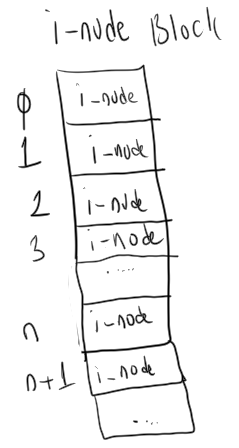 i-node Block
0 i-node
1 i-node
2 i-node
3 i-node
.....
n i-node
n+1 i-node
....